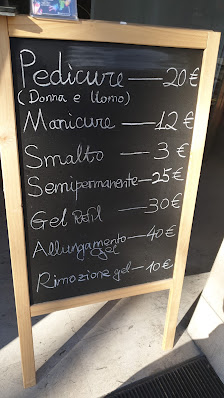 Pedicure — 20 €
(Donna e Uomo)
Manicure — 12 €
Smalto — 3 €
Semipermanente — 25 €
Gel Refil — 30 €
Allungamento — 40 €
gel
Rimozione gel — 10 €